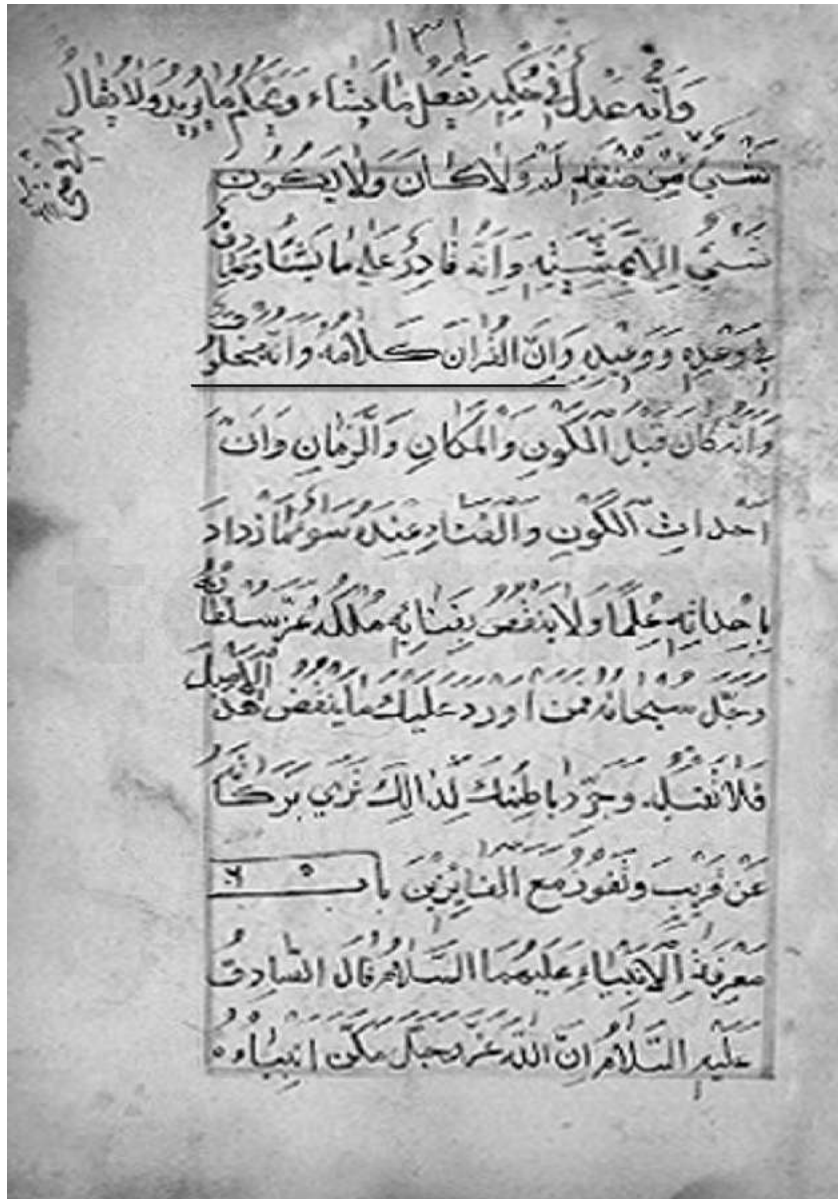 ١٣١
وَأنّه عدل في حكمه تفعل ما يشاء وَيحكم ما يريد ولا يقال
شَيءٍ مِن صُنعِه لم وَلا كانَ وَلا يَكونُ
شَيءٌ اِلا بمشيّته وَأنّه قادِرٌ علي ما يشاء وصادق
في وَعدِه وَوعيدِه وَانّ القرآن كلامُه وَانّه مخلوق
وَانّه كان قبل المكون والمكان والزمانِ وَانّ
احداثِ الكونِ والفناء عنده سواءٌ ما ازداد
باحداثه عِلمًا وَلا ينقص بفنائه ملكه عزّ سلطانه
وجلّ سبحانه فمن اورد عليك ما ينقض هذا الاصل
فلا تقبله وجرّد باطنك لذالك تري بركاته
عن قريب وتفوز مع الفايزين باب
معرفة الانبياءِ عليهما السّلام قال الصّادقُ
عليه السّلام انّ اللّه عزّ وجلّ مكّن انبياءه